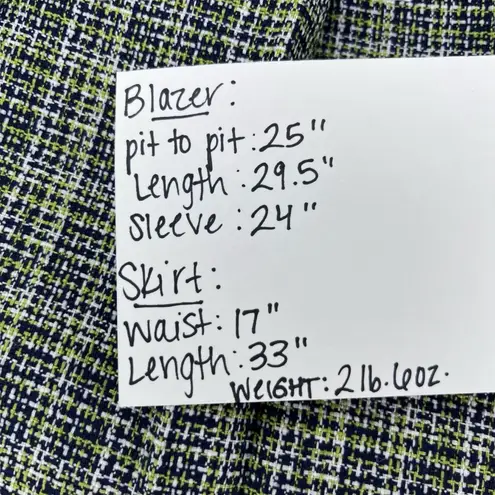 Blazer:
pit to pit: 25"
Length: 29.5"
Sleeve: 24"
Skirt:
Waist: 17"
Length: 33"
WEIGHT: 2 lb. 6oz.